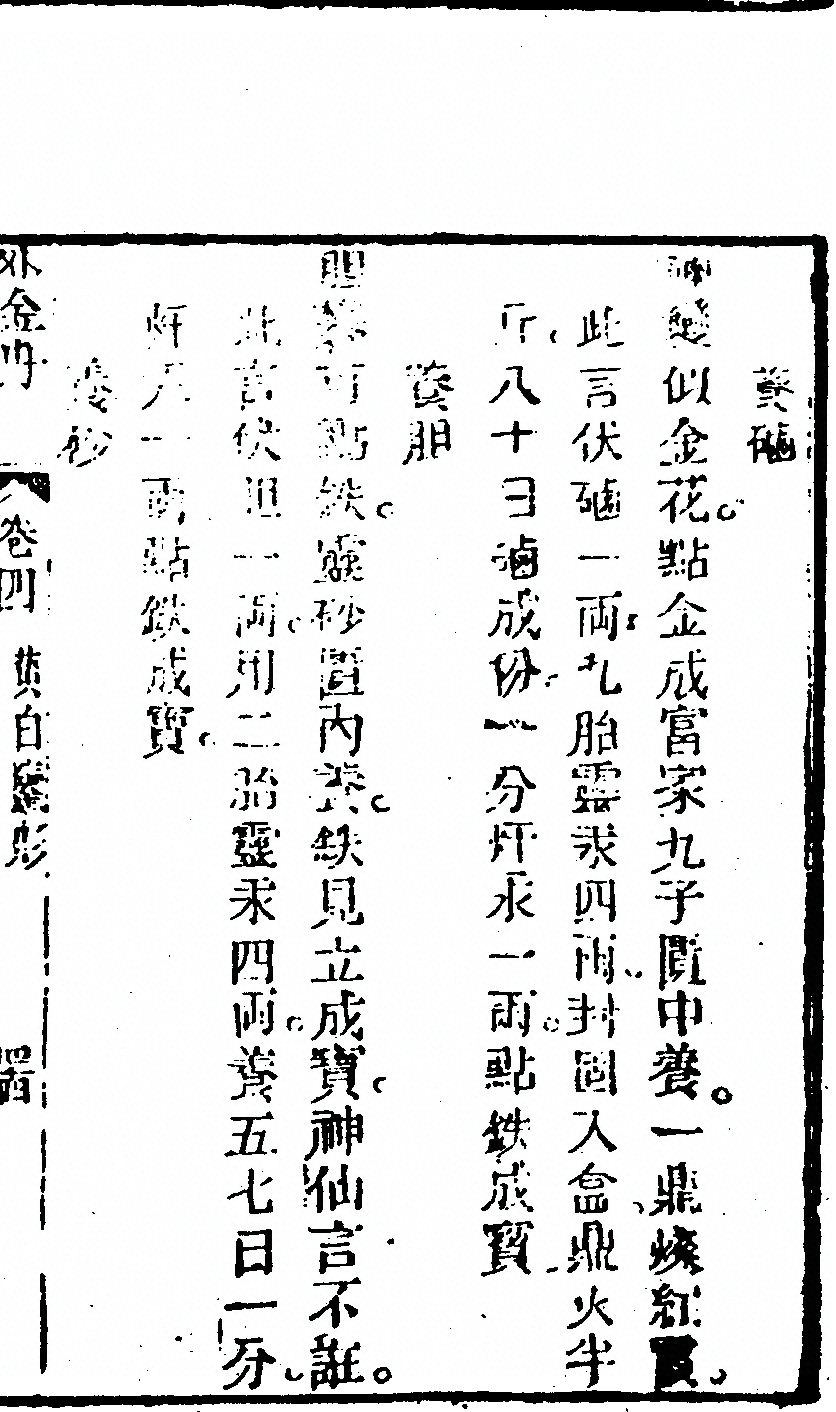 養硇
硇號似金花。點金成富家九子匱中養。一鼎燒紅霞。
此言伏硇一兩。九胎靈汞四兩。封固入盒鼎火半
斤。八十日硇成份。一分炉汞一兩。點鉄成寶
養胆
胆礬可點鉄。靈砂匱內養。鉄見立成寶。神仙言不誑。
此言伏胆一兩。用二胎靈汞四兩。養五七日一分。
炉人一兩點鉄成寶。
養砂
外金丹 卷四 黄白鑑形 罟